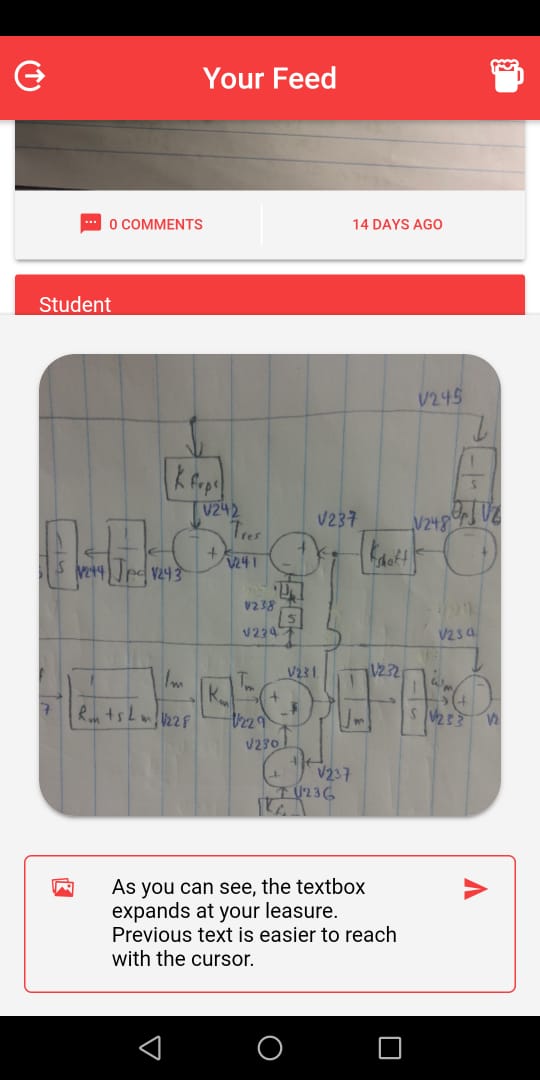 Your Feed
0 COMMENTS
14 DAYS AGO
Student
V245
1
s
K
V242
Tres
V237
V248
1
s
V244
1
V243
V241
Kshaft
V238
s
V239
V234
Im
Tm
V231
V232
Rm + sLm
V228
Km
V229
1
Jm
1
s
V233
7
V230
V237
V236
As you can see, the textbox
expands at your leasure.
Previous text is easier to reach
with the cursor.